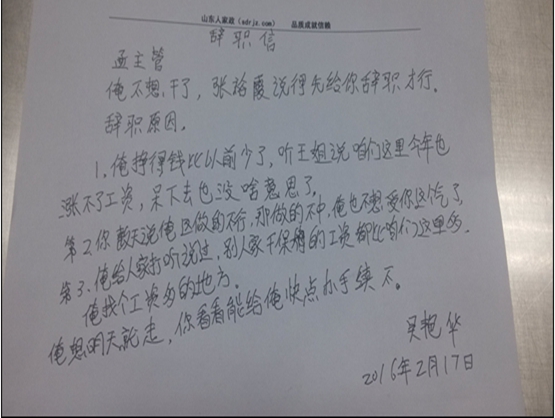 山东人家政（sdrjz.com）　　品质成就信赖
辞职信
孟主管
俺不想干了，张裕霞说得先给你辞职才行。
辞职原因。
1.俺挣得钱比以前少了，听王姐说咱们这里今年也
涨不了工资，呆下去也没啥意思了。
第2.你数天说俺这做的不行，那做的不中，俺也不想受你这气了
第3.俺给人家打听说过，别人家干保姆的工资都比咱们这里多.
俺找个工资多的地方。
俺想明天就走，你看看能给俺快点办手续不。
吴艳华
2016年2月17日